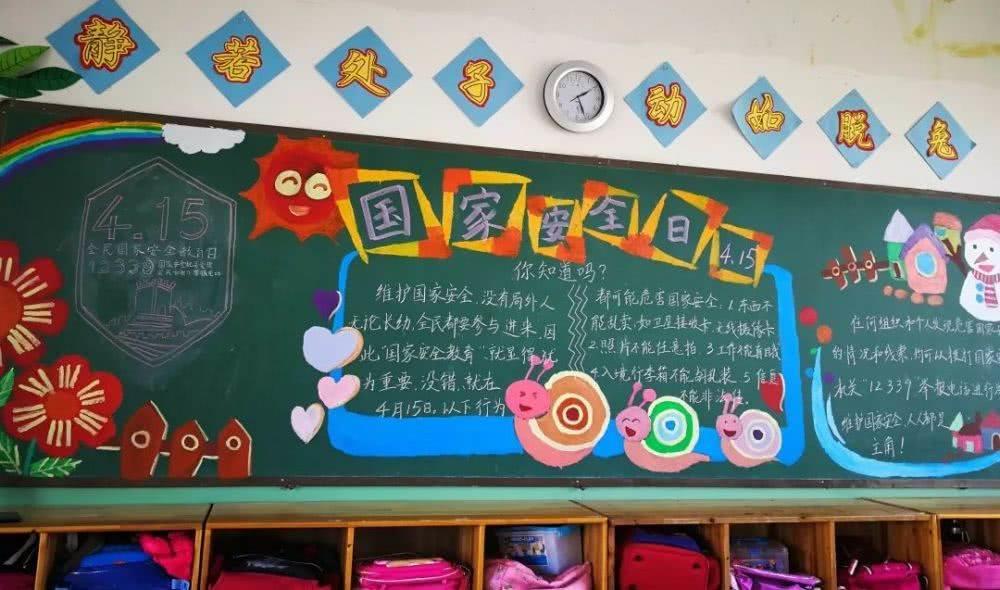 静若处子 动如脱兔
4.15
全民国家安全教育日
12339
国家安全日
4.15
你知道吗?
维护国家安全,没有局外人
无论长幼,全民都要参与进来,因
此"国家安全教育"就显得
为重要,没错,就在
4月15日,以下行为
都可能危害国家安全,1.东西不
能乱卖,如卫星接收卡,无线摄像卡
2.照片不能任意拍,3.工作不能盲目找
4.入境行李箱不能胡乱装,5.信息
不能非法
任何组织和个人发现危害国家
的情况和线索,均可以拨打国家
机关"12339"举报电话进行
维护国家安全,人人都是
主角!